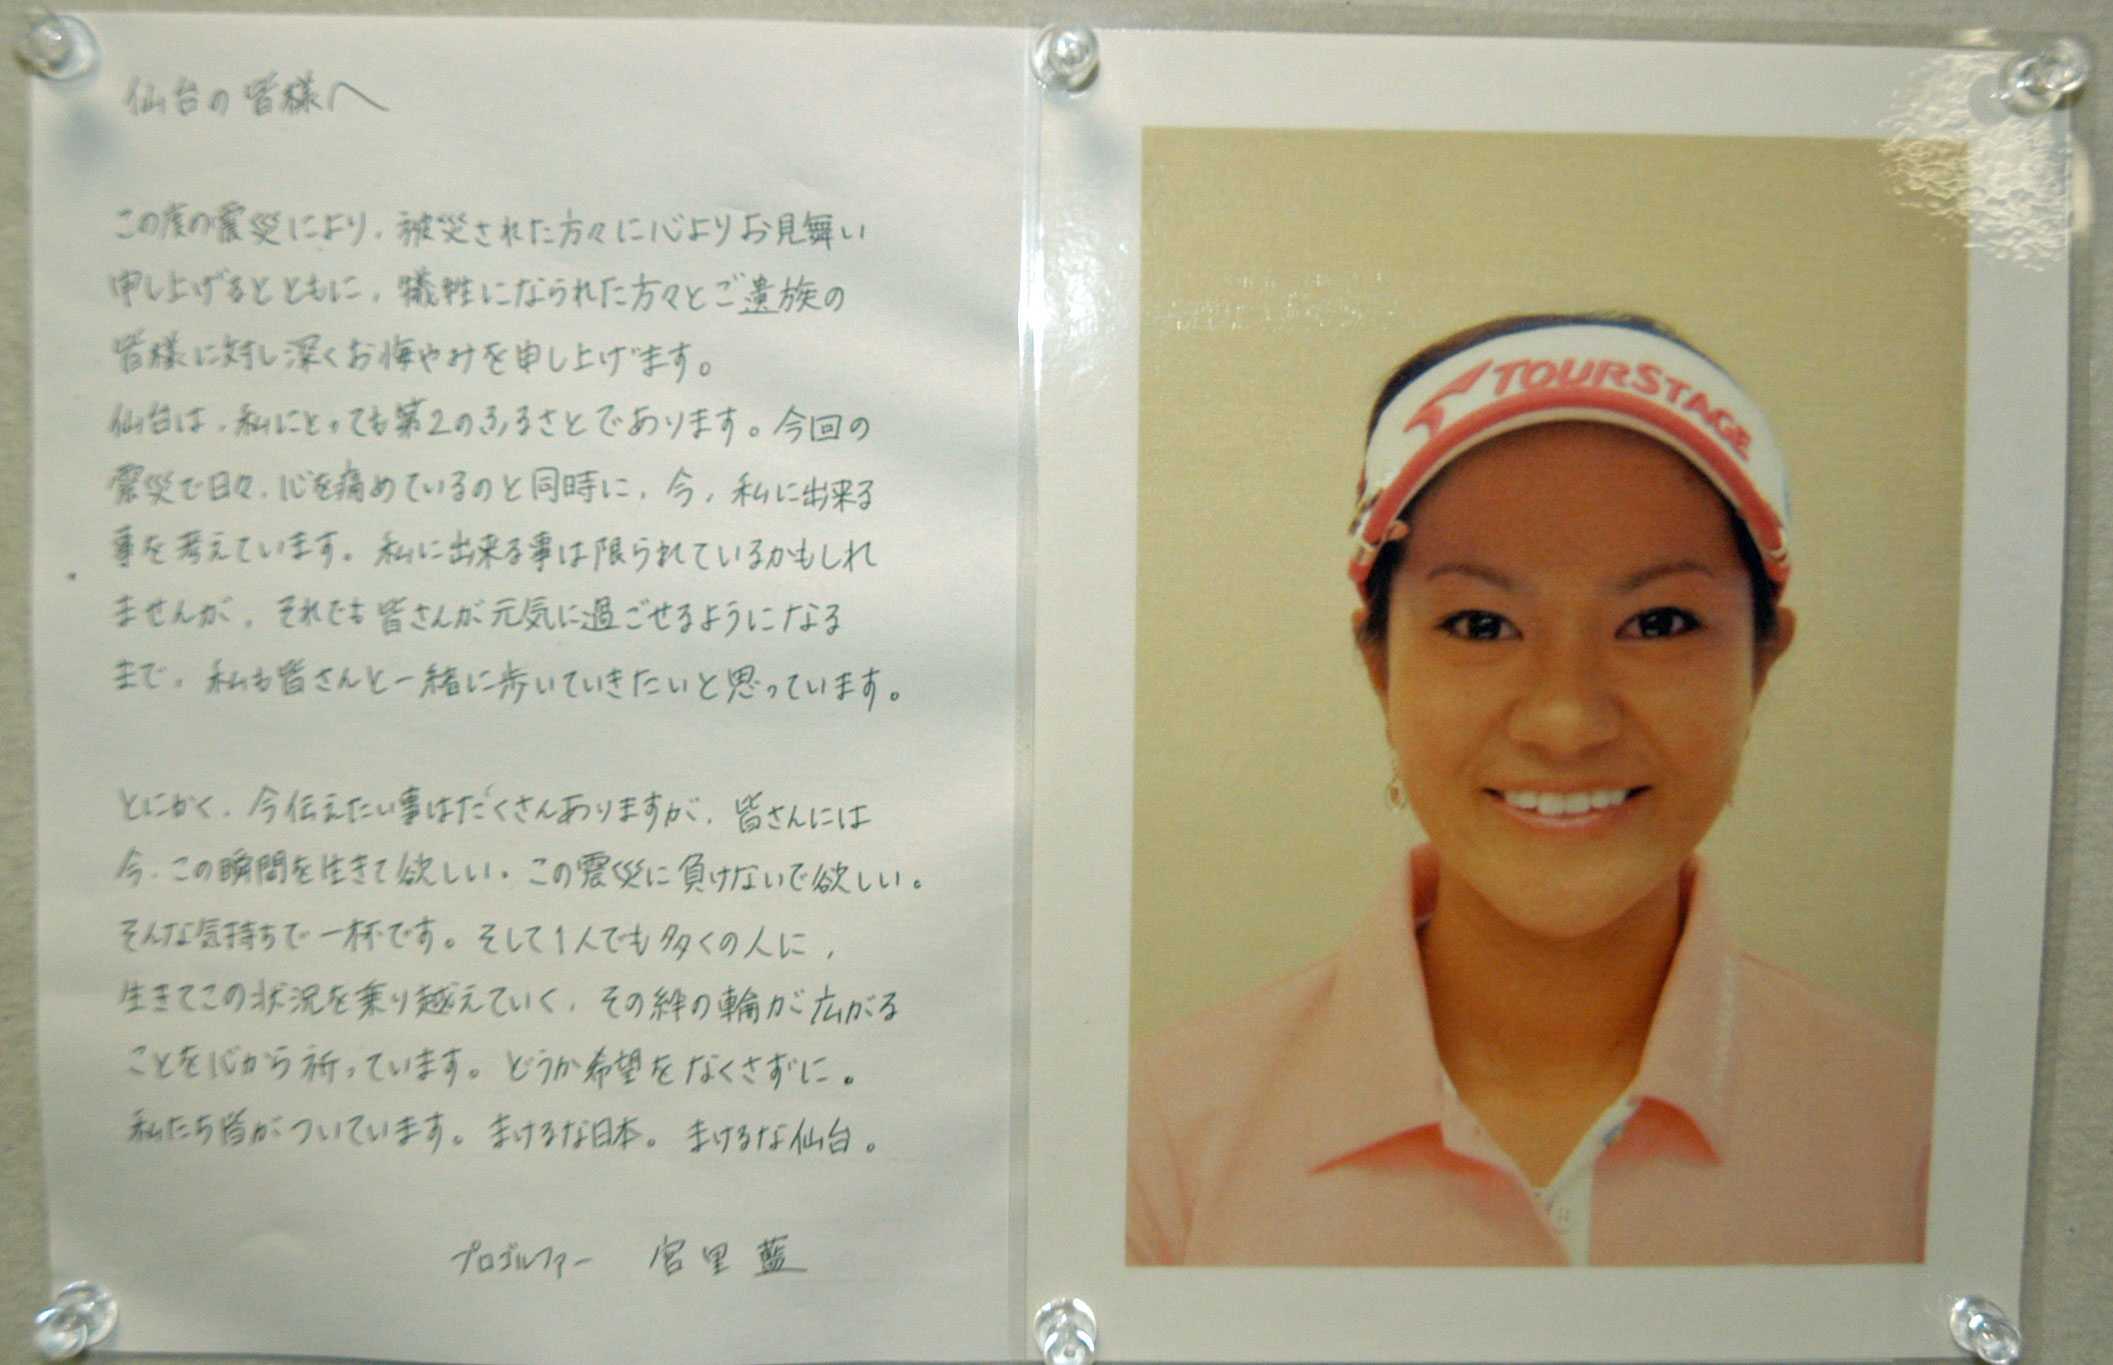 仙台の皆様へ
この度の震災により、被災された方々に心よりお見舞い
申し上げるとともに、犠牲になられた方々とご遺族の
皆様に対し深くお悔やみを申し上げます。
仙台は、私にとっても第2のふるさとであります。今回の
震災で日々、心を痛めているのと同時に、今、私に出来る
事を考えています。私に出来る事は限られているかもしれ
ませんが、それでも皆さんが元気に過ごせるようになる
まで、私も皆さんと一緒に歩いていきたいと思っています。
とにかく、今伝えたい事はたくさんありますが、皆さんには
今、この瞬間を生きて欲しい。この震災に負けないで欲しい。
そんな気持ちで一杯です。そして1人でも多くの人に、
生きてこの状況を乗り越えていく、その絆の輪が広がる
ことを心から祈っています。どうか希望をなくさずに。
私たち皆がついています。まけるな日本。まけるな仙台。
プロゴルファー 宮里 藍
TOURSTAGE